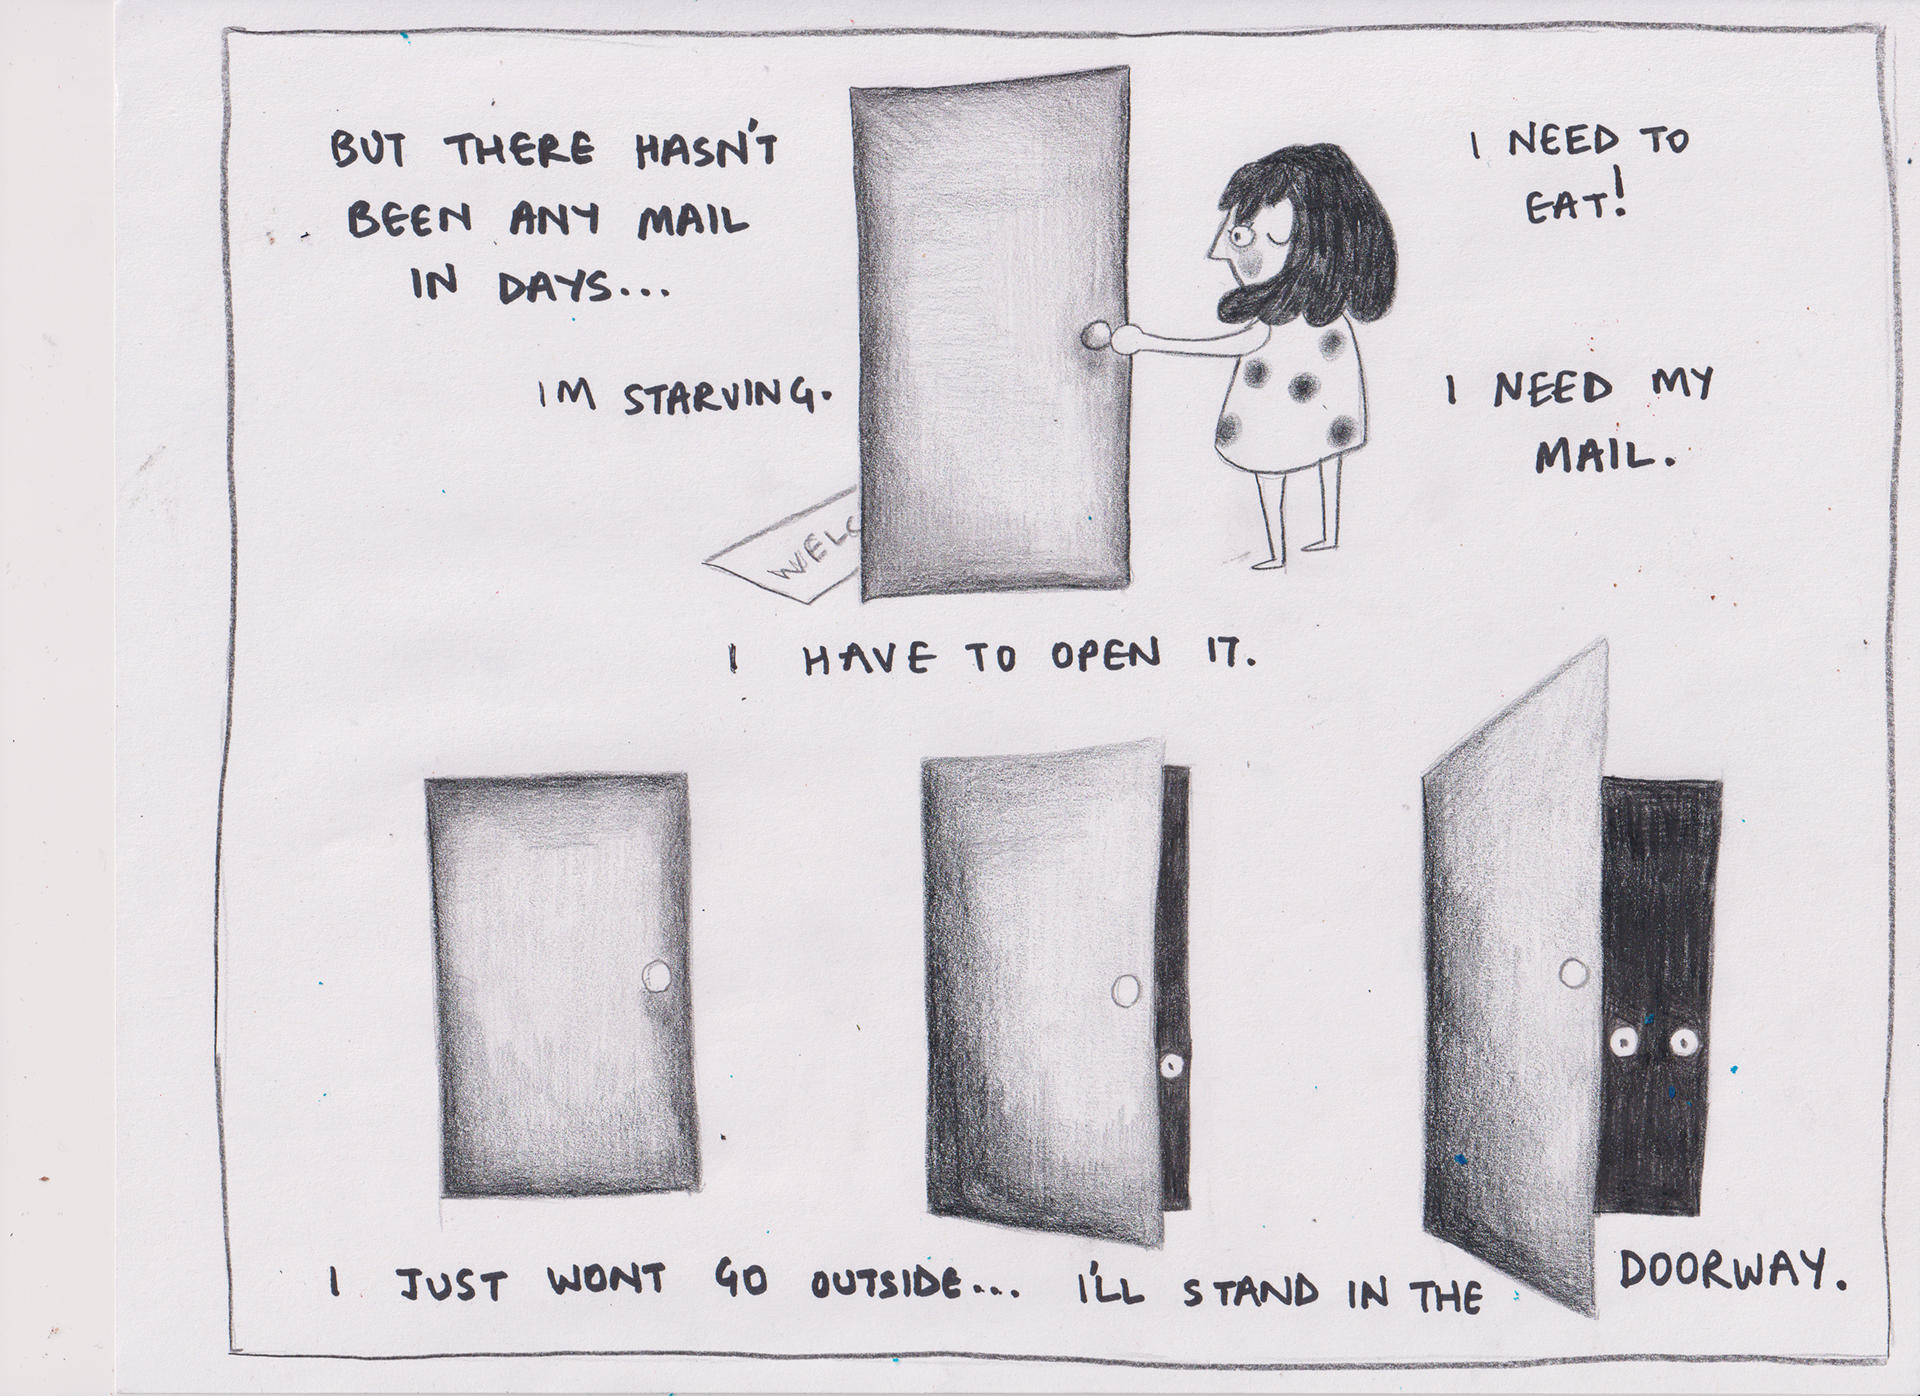 BUT THERE HASN'T
BEEN ANY MAIL
IN DAYS...
IM STARVING.
I NEED TO
EAT!
I NEED MY
MAIL.
WELC
I HAVE TO OPEN IT.
I JUST WONT GO OUTSIDE... I'LL STAND IN THE DOORWAY.